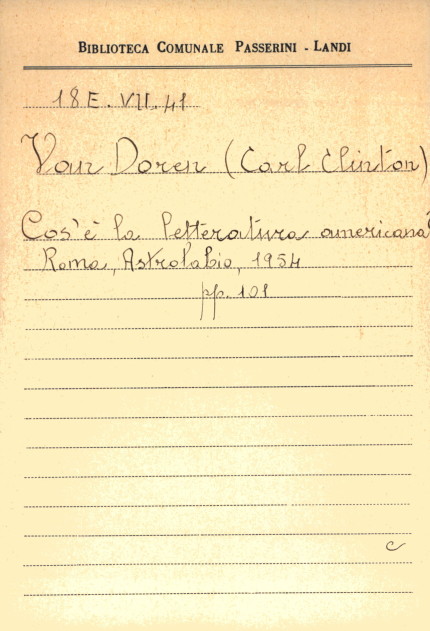 BIBLIOTECA COMUNALE PASSERINI - LANDI
18 E. VII. 41
Van Doren (Carl Clinton)
Cos'è la letteratura americana?
Roma, Astrolabio, 1954
pp. 101
c